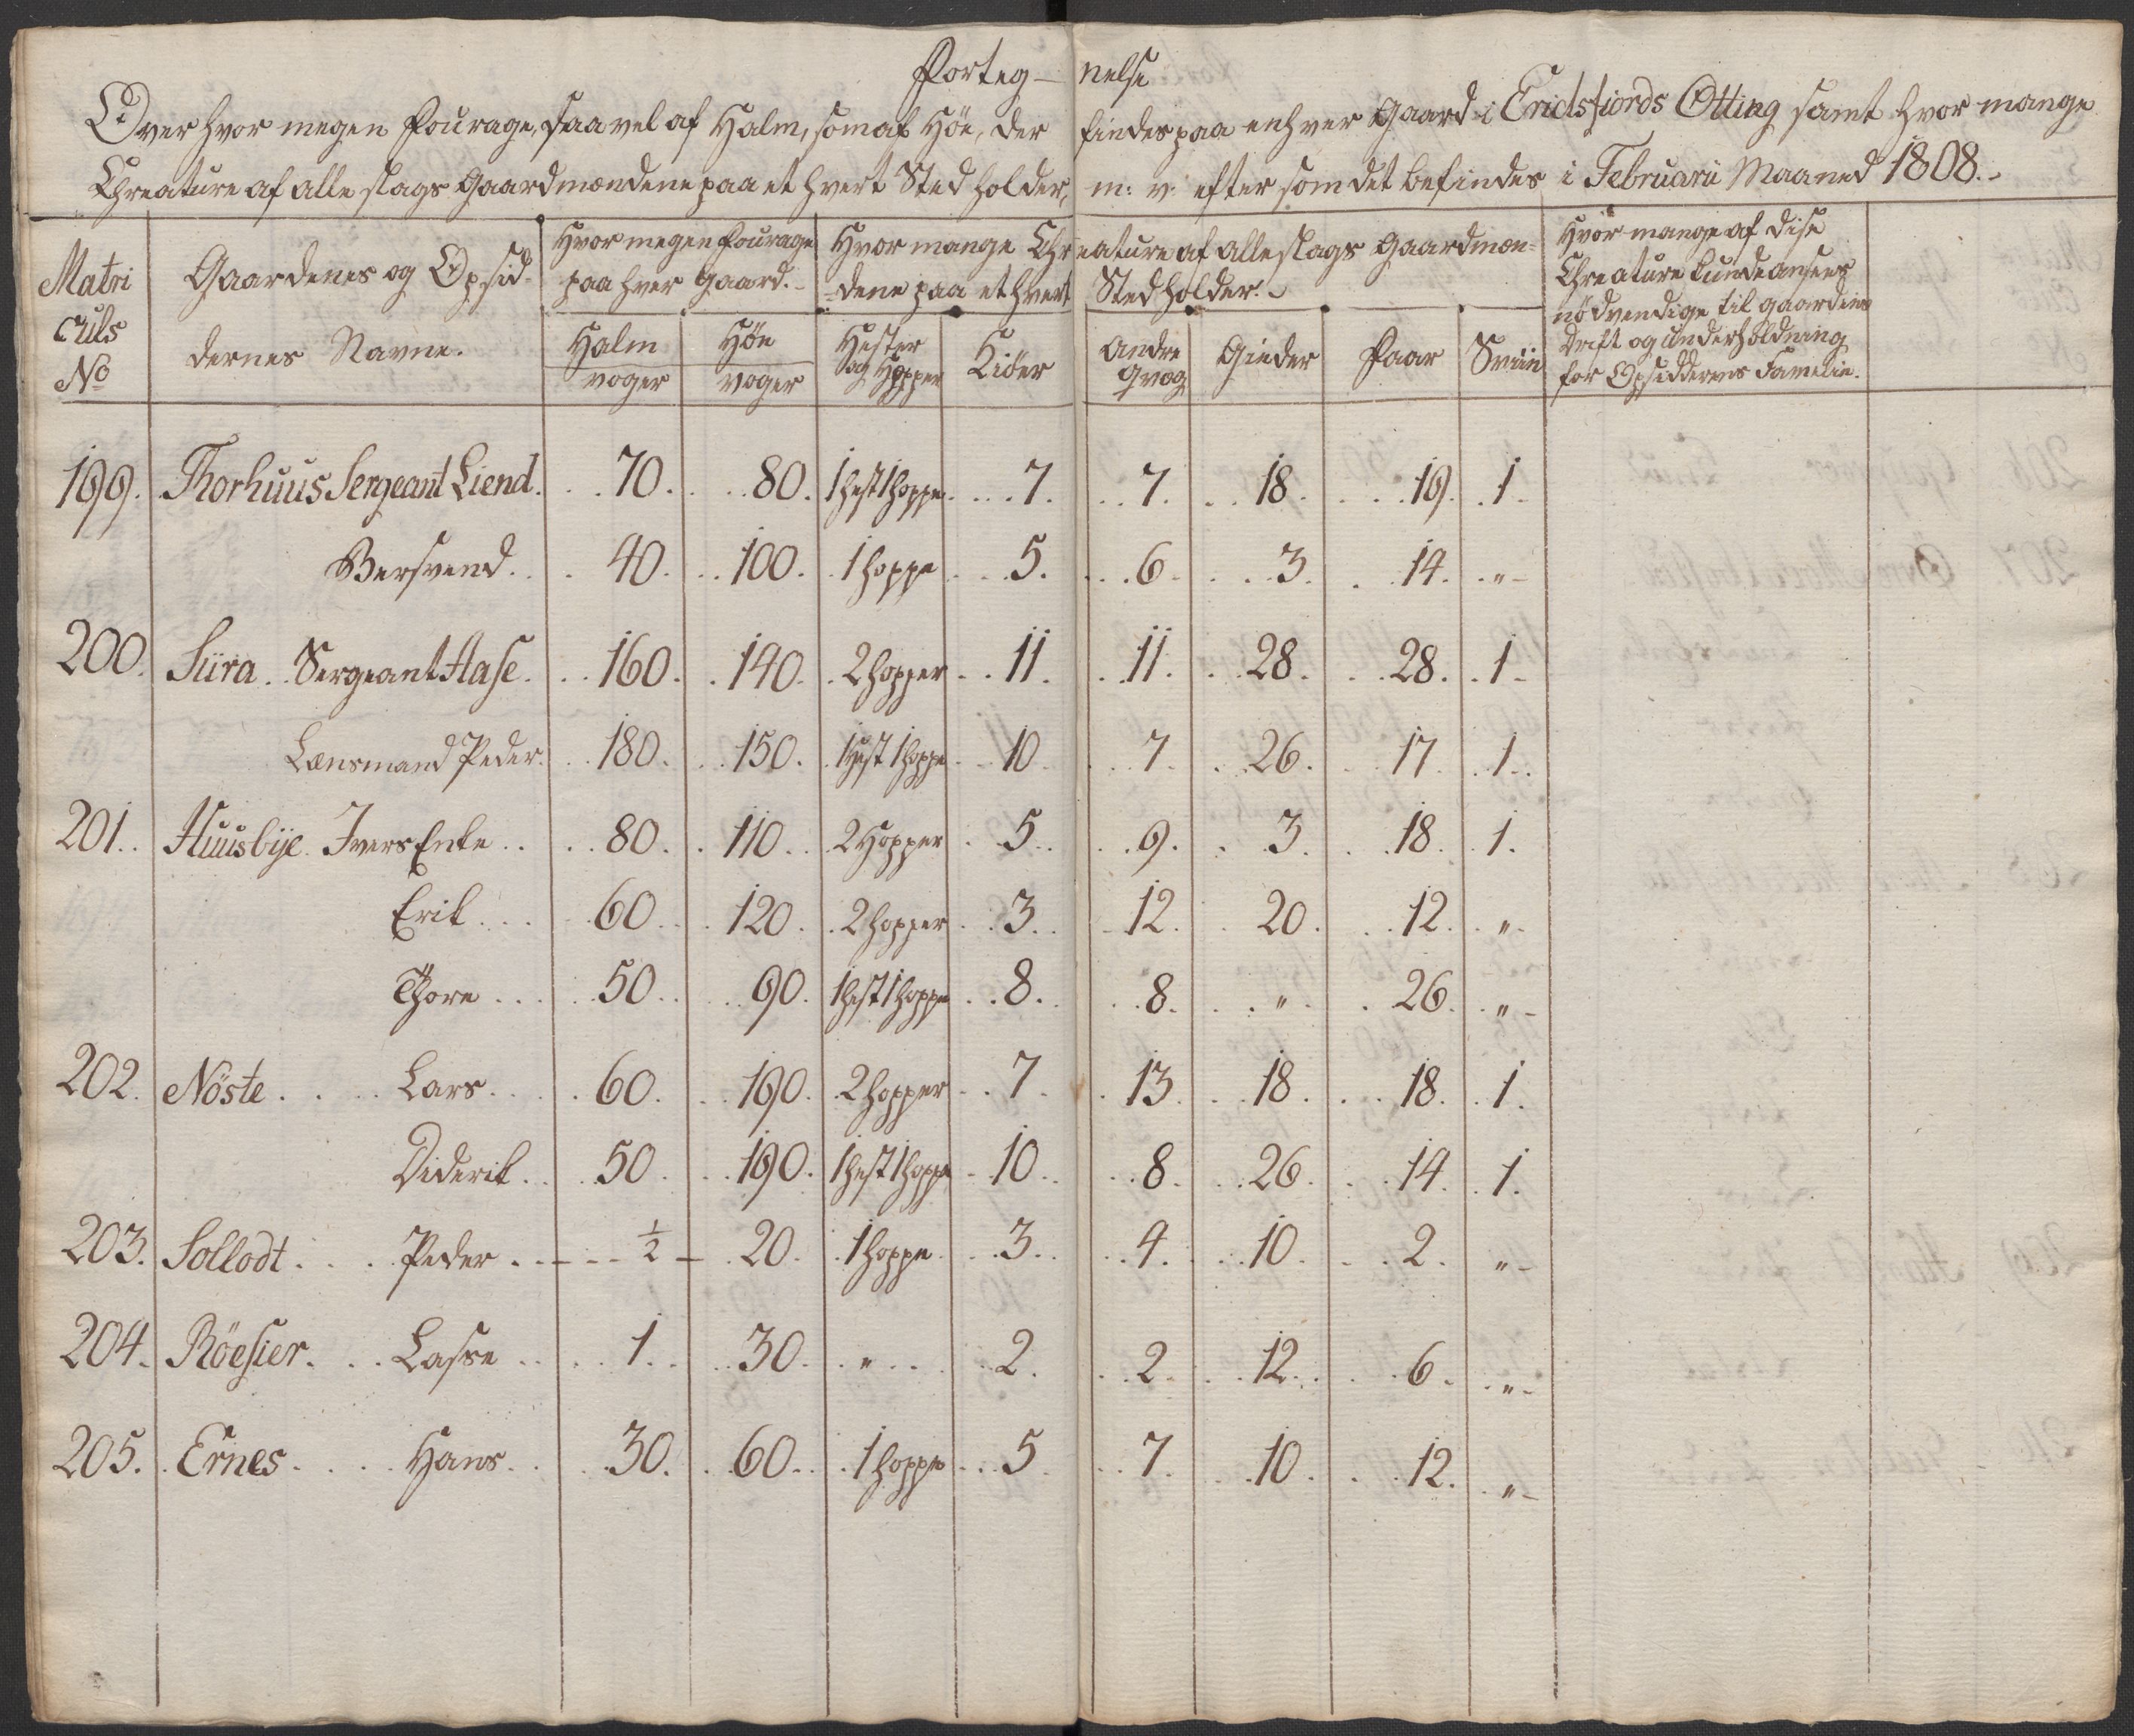 Forteg- nelse
Over hvor megen Fourage, saavel af Halm, som af Höe, der findes paa enhver Gaard i Eridsfiords Otting samt hvor mange
Chreature af alle slags Gaardmændene paa et hvert Sted holder, m: v: efter som det befindes i Februarii Maaned 1808.-
Matri culs No | Gaardenes og Opsid- dernes Navne. | Hvor megen Fourage paa hver Gaard.- | Hvor mange Chreature af alle slags Gaardmæn- =dene paa et hvert Sted holder.- | Hvor mange af disse Chreature kunde ansees nödvendige til Gaardens Drift og underholdning for Opsidderens Familie.
Halm voger | Höe voger | Hester og Hopper | Kiöer | Andre Qvæg | Gieder | Faar | Sviin
199. Thorhuus Sergeant Liend. 70. 80. 1 hest 1 hoppe 7. 7. 18. 19. 1.
Bersvend. 40. 100. 1 hoppe 5. 6. 3. 14. "
200. Siira. Sergeant Aase. 160. 140. 2 hopper 11. 11. 28. 28. 1
Lensmand Peder. 180. 150. 1 Hest 1 hoppe 10 7. 26. 17. 1.
201. Huusbije. Ivers Enke. 80. 110. 2 Hopper 5. 9. 3. 18. 1.
Erik. 60. 120. 2 hopper 3. 12. 20. 12. "
Thore. 50. 90. 1 hest 1 hoppe 8. 8. " 26. "
202. Nöste. Lars. 60. 190. 2 hopper 7. 13. 18. 18. 1.
Diderik. 50. 190. 1 hest 1 hoppe 10. 8. 26. 14. 1.
203. Sollodt. Peder. 1/2 20. 1 hoppe. 3. 4. 10. 2. "
204. Röesier. Lasse 1. 30. " 2. 2. 12. 6. "
205. Ernes. Hans. 30. 60. 1 hoppe 5 7. 10. 12. "